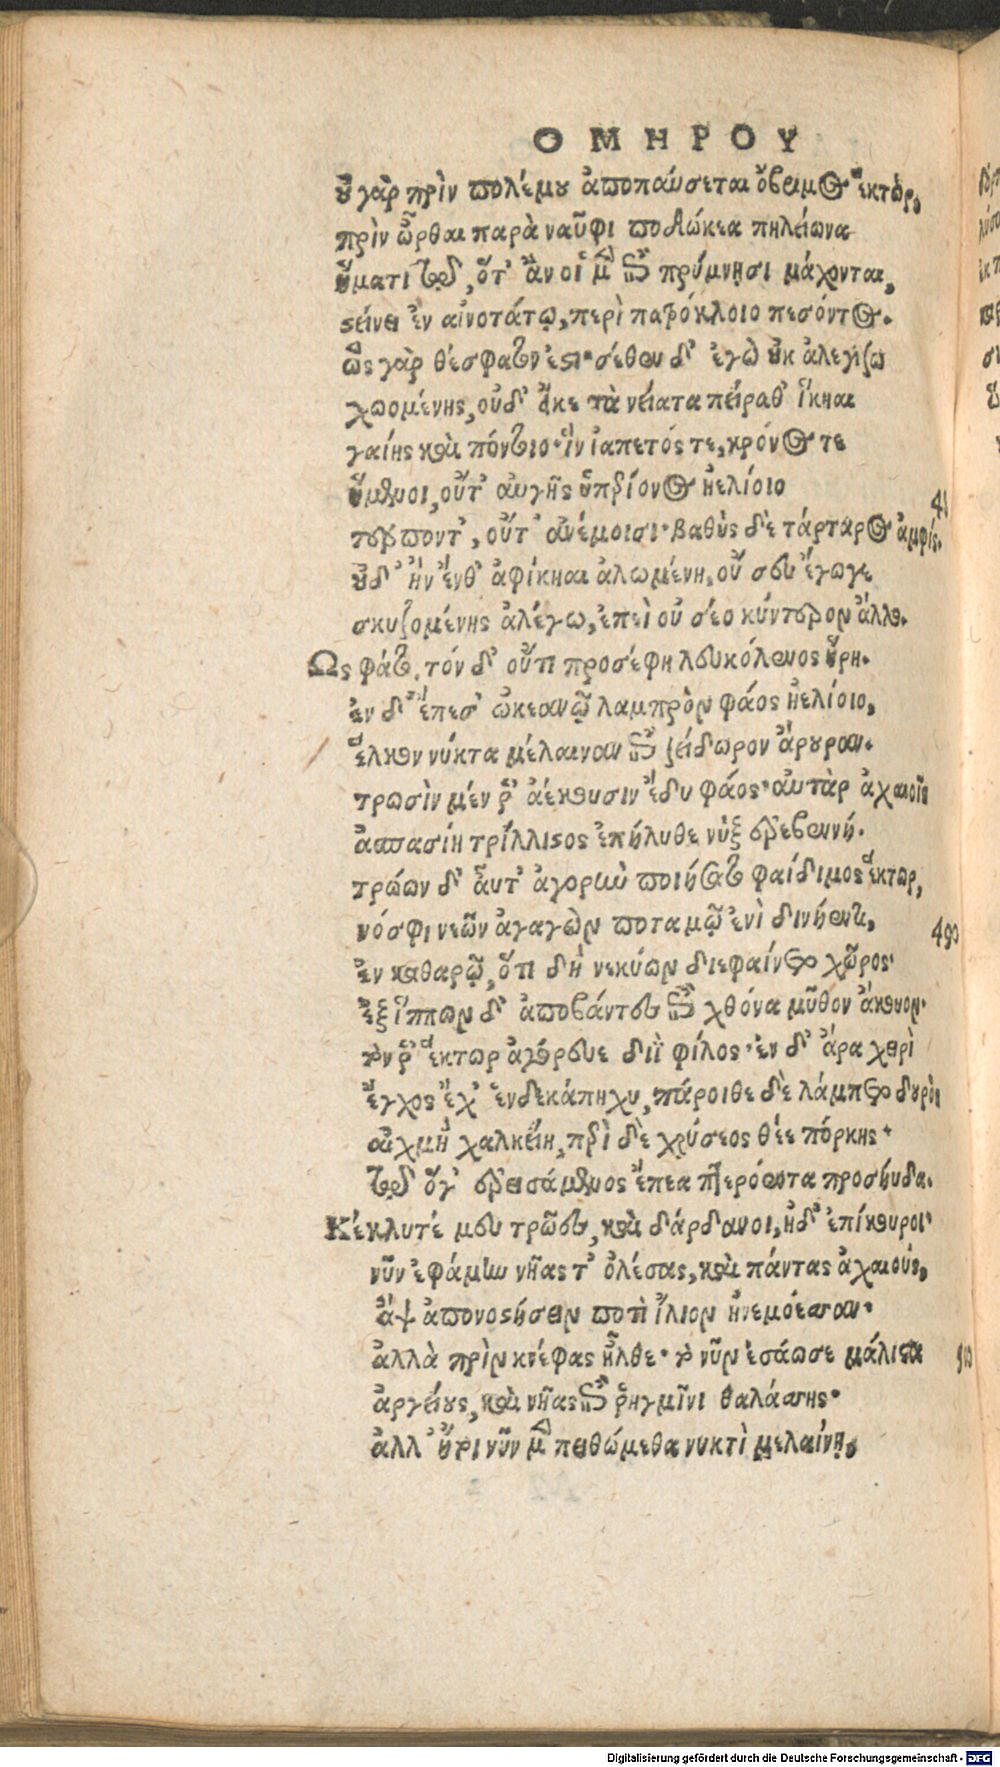 ΟΜΗΡΟΥ
οὐ γὰρ πρὶν πολέμου ἀποπαύσεται ὄβριμος ἕκτωρ,
πρὶν ὦρθαι παρὰ ναῦφι ποδώκεα πηλείωνα
ἤματι τῷδ', ὅτ' ἂν οἱ μὲν ἐπὶ πρύμνῃσι μάχονται,
στείνει ἐν αἰνοτάτῳ, περὶ πατρόκλοιο πεσόντος.
ὣς γὰρ θέσφατόν ἐστι· σέθεν δ' ἐγὼ οὐκ ἀλεγίζω
χωομένης, οὐδ' ἄκε τὰ νείατα πείραθ' ἵκηαι
γαίης καὶ πόντοιο· ἵν ἰαπετός τε, κρόνος τε
ἥμενοι, οὔτ' αὐγῆς ὑπερίονος ἠελίοιο
τέρποντ', οὔτ' ἀνέμοισι· βαθὺς δὲ τάρταρος ἀμφίς.
οὐδ' ἢν ἔνθ' ἀφίκηαι ἀλωμένη, οὔ σευ ἔγωγε
σκυζομένης ἀλέγω, ἐπεὶ οὐ σέο κύντερον ἄλλο.
Ὣς φάτο, τὸν δ' οὔτι προσέφη λευκώλενος ἥρη.
ἐν δ' ἔπεσ' ὠκεανῷ λαμπρὸν φάος ἠελίοιο,
ἕλκον νύκτα μέλαιναν ἐπὶ ζείδωρον ἄρουραν.
τρωσὶν μέν ῥ' ἀέκουσιν ἔδυ φάος· αὐτὰρ ἀχαιοῖς
ἀσπασίη τρίλλιστος ἐπήλυθε νὺξ ἐρεβεννή.
τρώων δ' αὖτ' ἀγορὴν ποιήσατο φαίδιμος ἕκτωρ,
νόσφι νεῶν ἀγαγὼν ποταμῷ ἐνὶ δινήεντι, 490
ἐν καθαρῷ, ὅτι δὴ νεκύων διεφαίνετο χῶρος·
ἐξ ἵππων δ' ἀποβάντες ἐπὶ χθόνα μῦθον ἄκουον·
τόν ῥ' ἕκτωρ ἀγόρευε διῒ φίλος· ἐν δ' ἄρα χειρὶ
ἔγχος ἔχ' ἑνδεκάπηχυ, πάροιθε δὲ λάμπετο δουρὸς
αἰχμὴ χαλκείη, περὶ δὲ χρύσεος θέε πόρκης·
τῷδ' ὅγ' ἐρεισάμενος ἔπεα πτερόεντα προσηύδα.
Κέκλυτέ μευ τρῶες, καὶ δάρδανοι, ἠδ' ἐπίκουροι·
νῦν ἐφάμην νῆας τ' ὀλέσας, καὶ πάντας ἀχαιούς,
ἂψ ἀπονοστήσειν ποτὶ ἴλιον ἠνεμόεσσαν·
ἀλλὰ πρὶν κνέφας ἦλθε· τὸ νῦν ἐσάωσε μάλιστα
ἀργείους, καὶ νῆας ἐπὶ ῥηγμῖνι θαλάσσης·
ἀλλ' ἤτοι νῦν μὲν πειθώμεθα νυκτὶ μελαίνῃ,
Digitalisierung gefördert durch die Deutsche Forschungsgemeinschaft - DFG